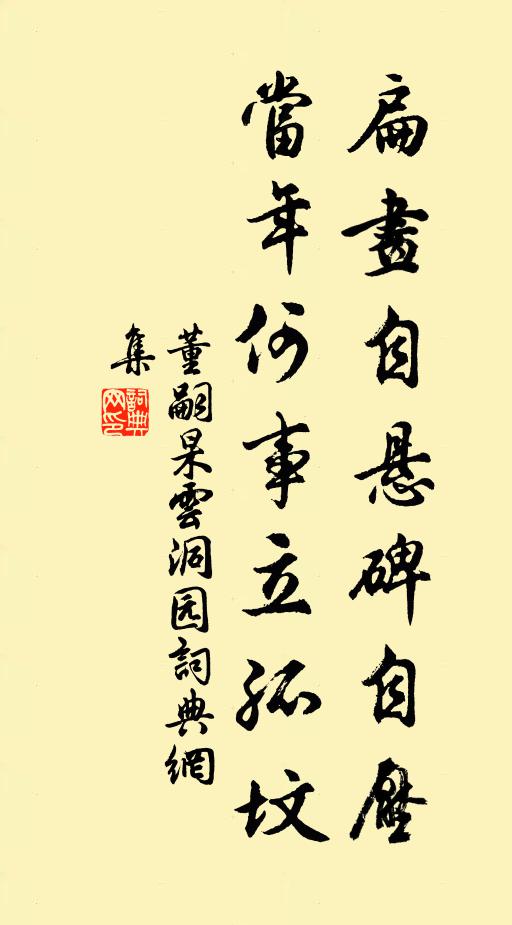 扁畫自悬碑自壓
當年何事立孤墳
董嗣杲雲洞园詞典網
集
詞典
网印